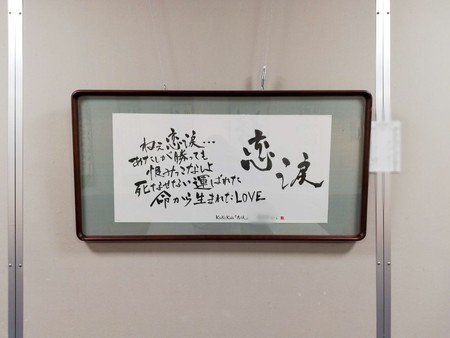 恋涙
ねぇ恋涙…
あたしが勝っても
恨みっこなしよ
死なせない運ばれた
命から生まれたLOVE
KinKi Kids「恋涙」